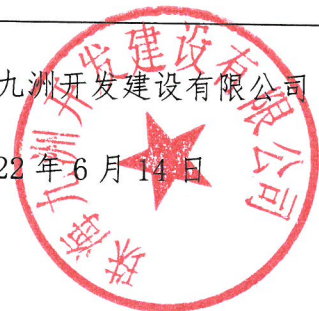 九洲开发建设有限公司
22年6月14日
珠海九洲开发建设有限公司